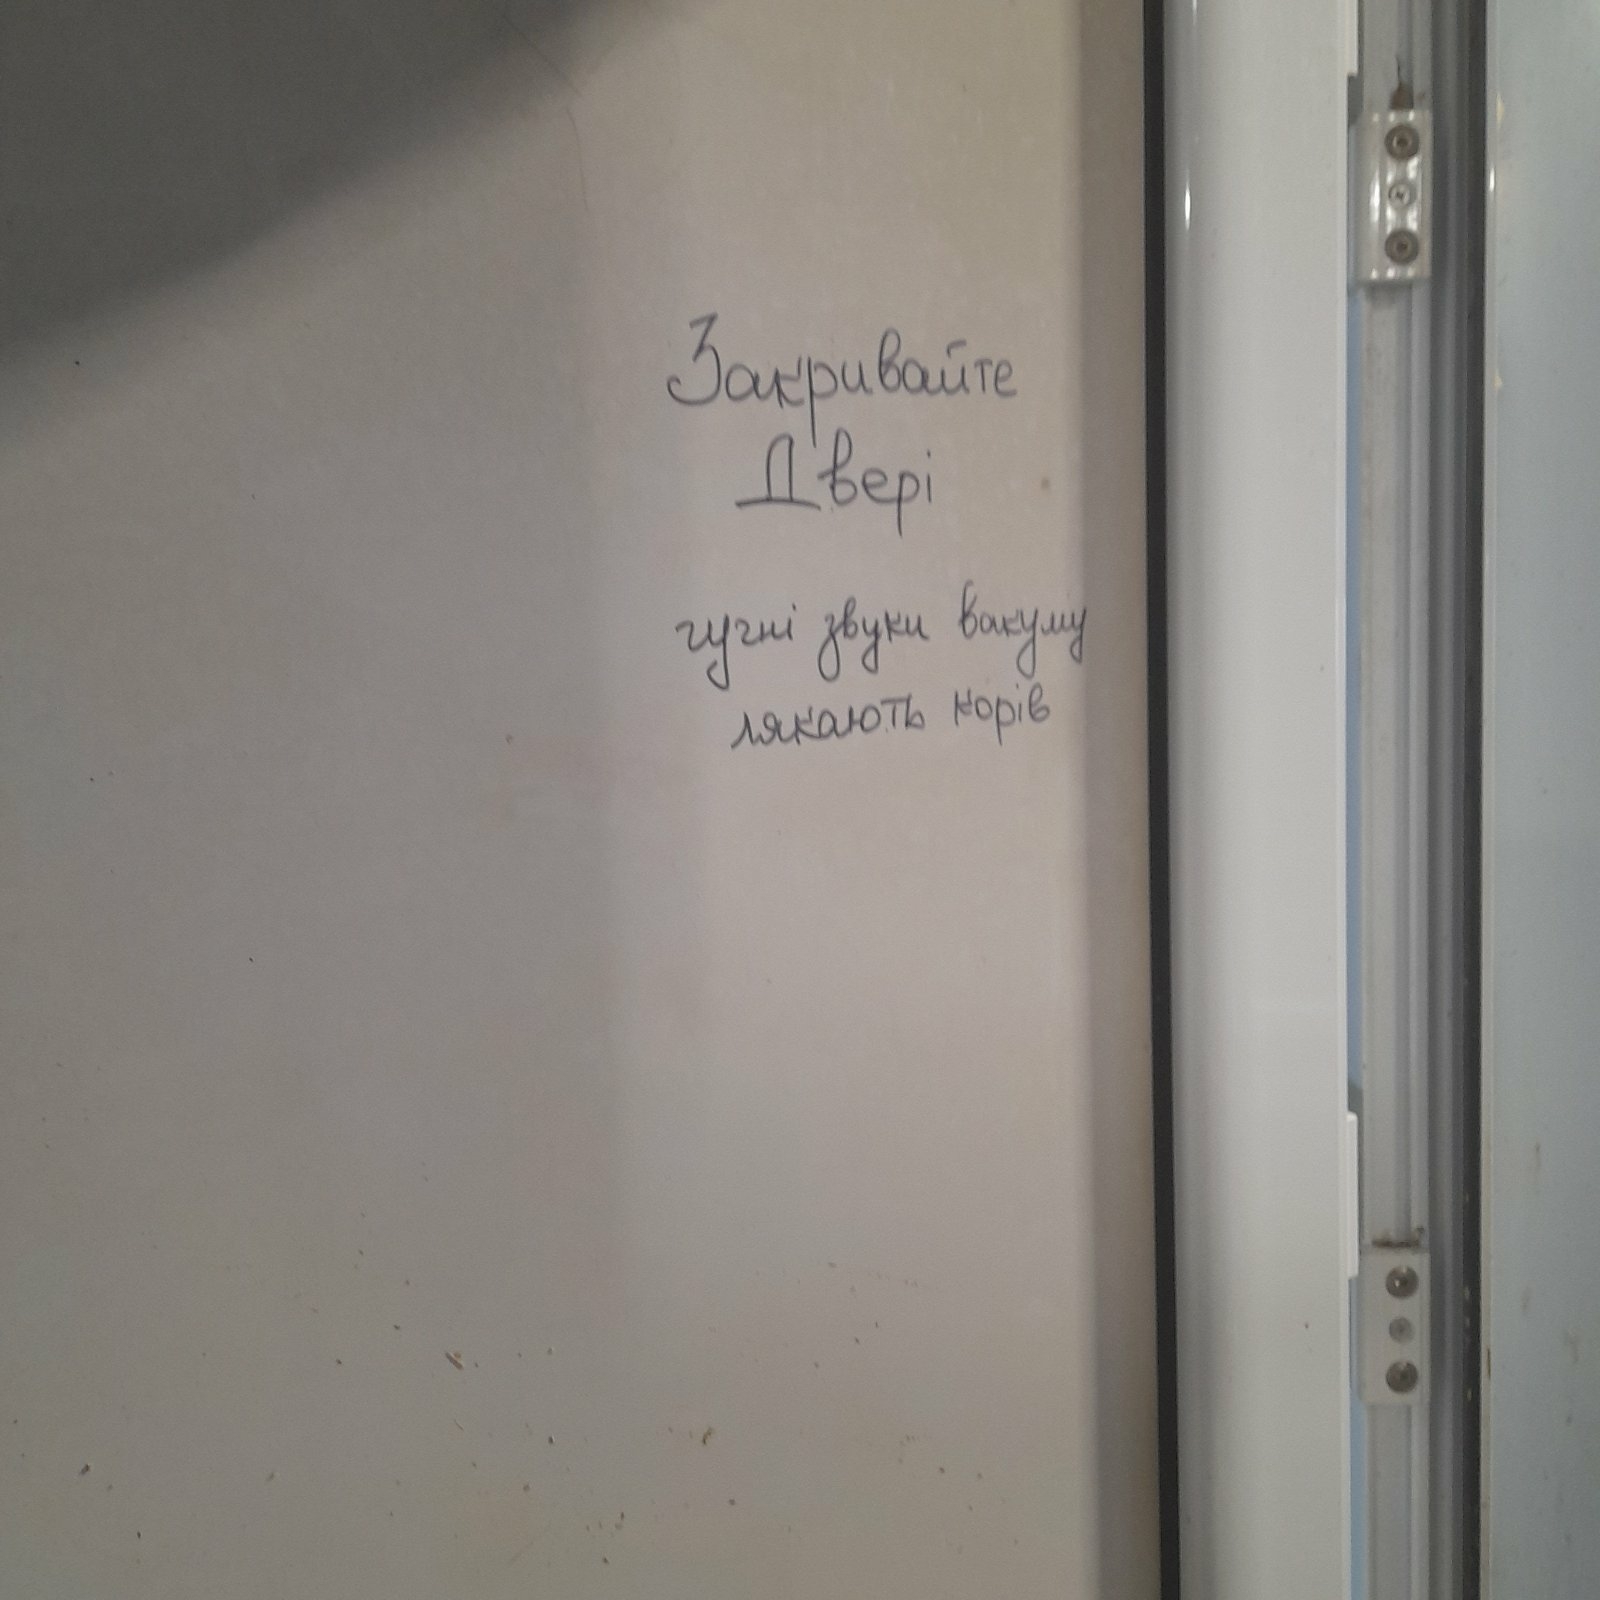 Закривайте
Двері
гучні звуки вакуму
лякають корів